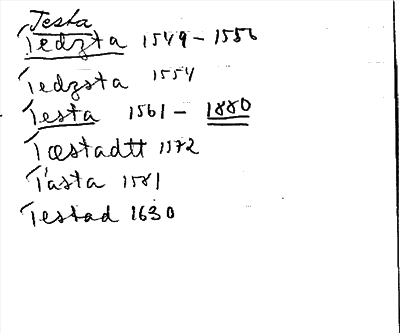 Testa
Tedzta 1549-1556
Tedzsta 1554
Testa 1561- 1880
Tæstadtt 1572
Tasta 1581
Testad 1630